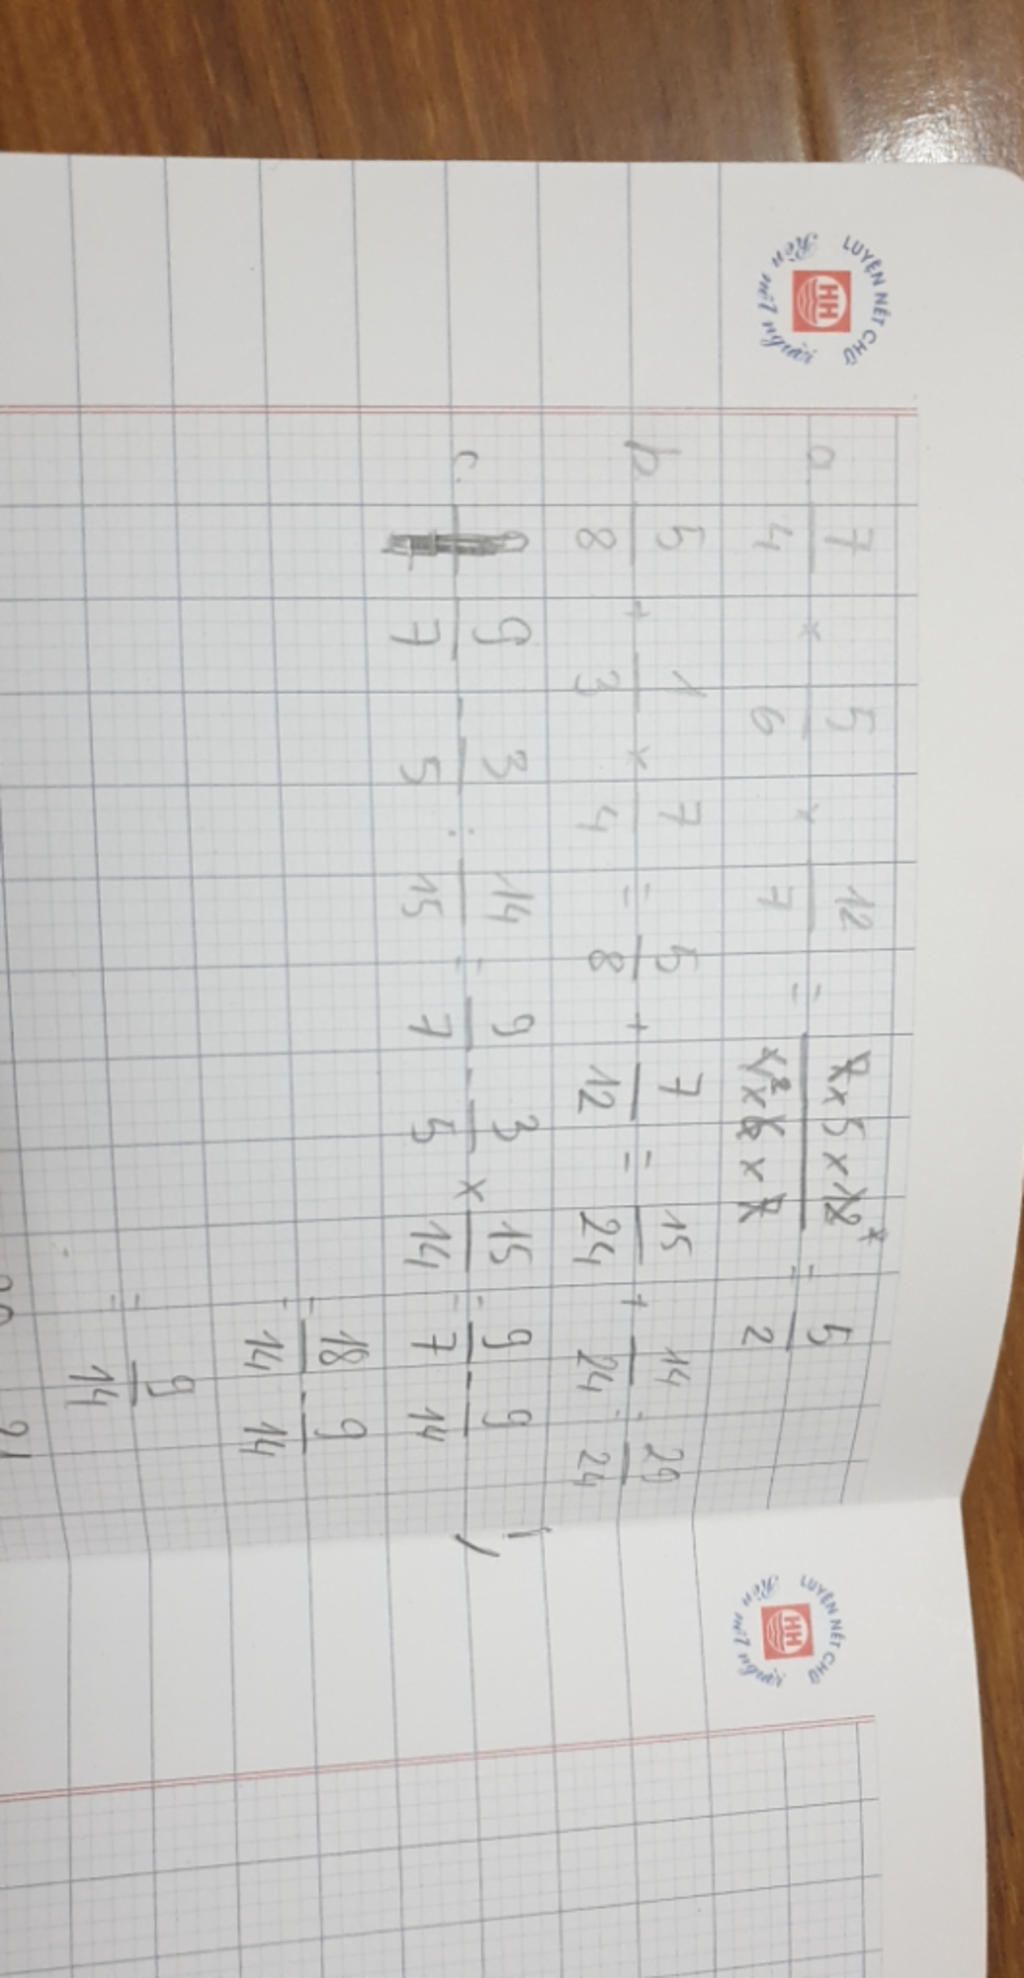 LUYỆN NÉT CHỮ
HH
Rèn nết người
a 7/4 × 5/6 × 12/7 = 7×5×12/4×6×7 = 5/2
b 5/8 + 1/3 × 7/4 = 5/8 + 7/12 = 15/24 + 14/24 = 29/24
c. 9/7 - 3/5 : 14/15 = 9/7 - 3/5 × 15/14 = 9/7 - 9/14
= 18/14 - 9/14
= 9/14
LUYỆN NÉT CHỮ
HH
Rèn nết người